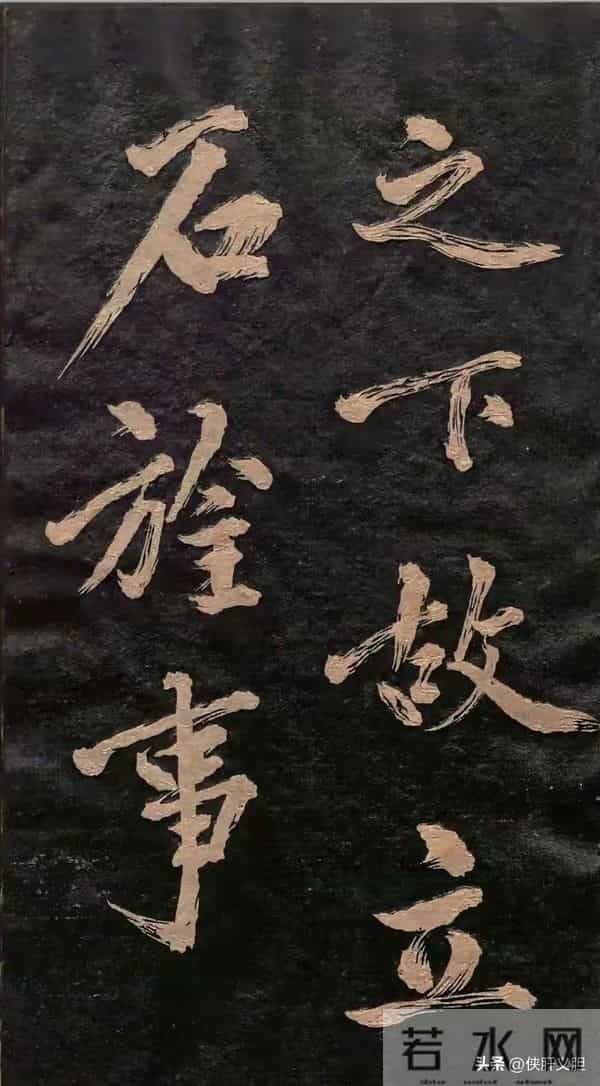 之下故立
石旌事
若水网
头条 @侠肝义胆